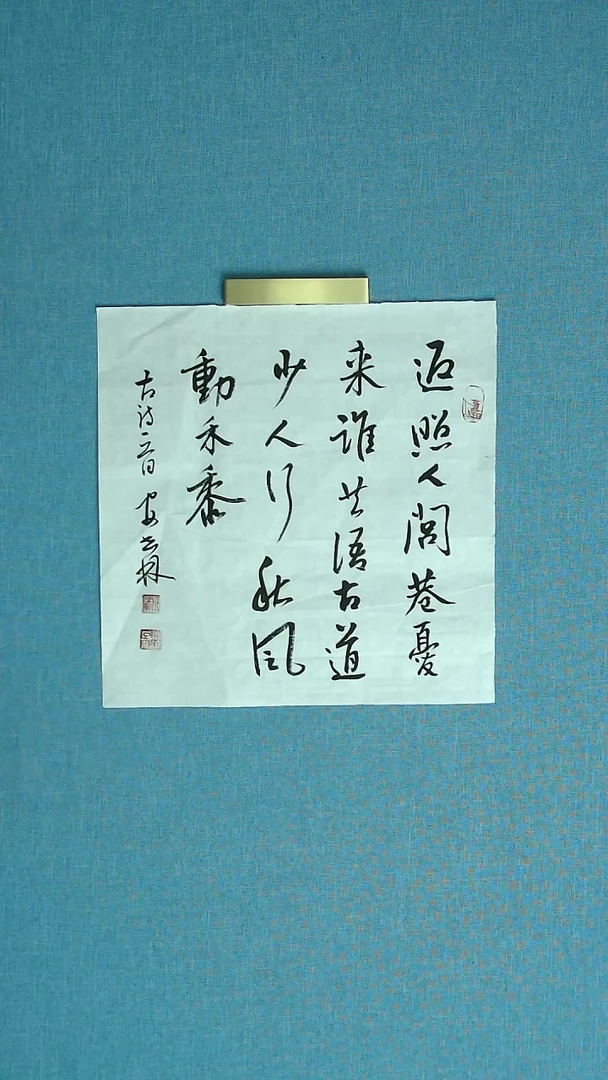 返照入閭巷憂
来誰共語古道
少人行秋風
動禾黍
古诗一首